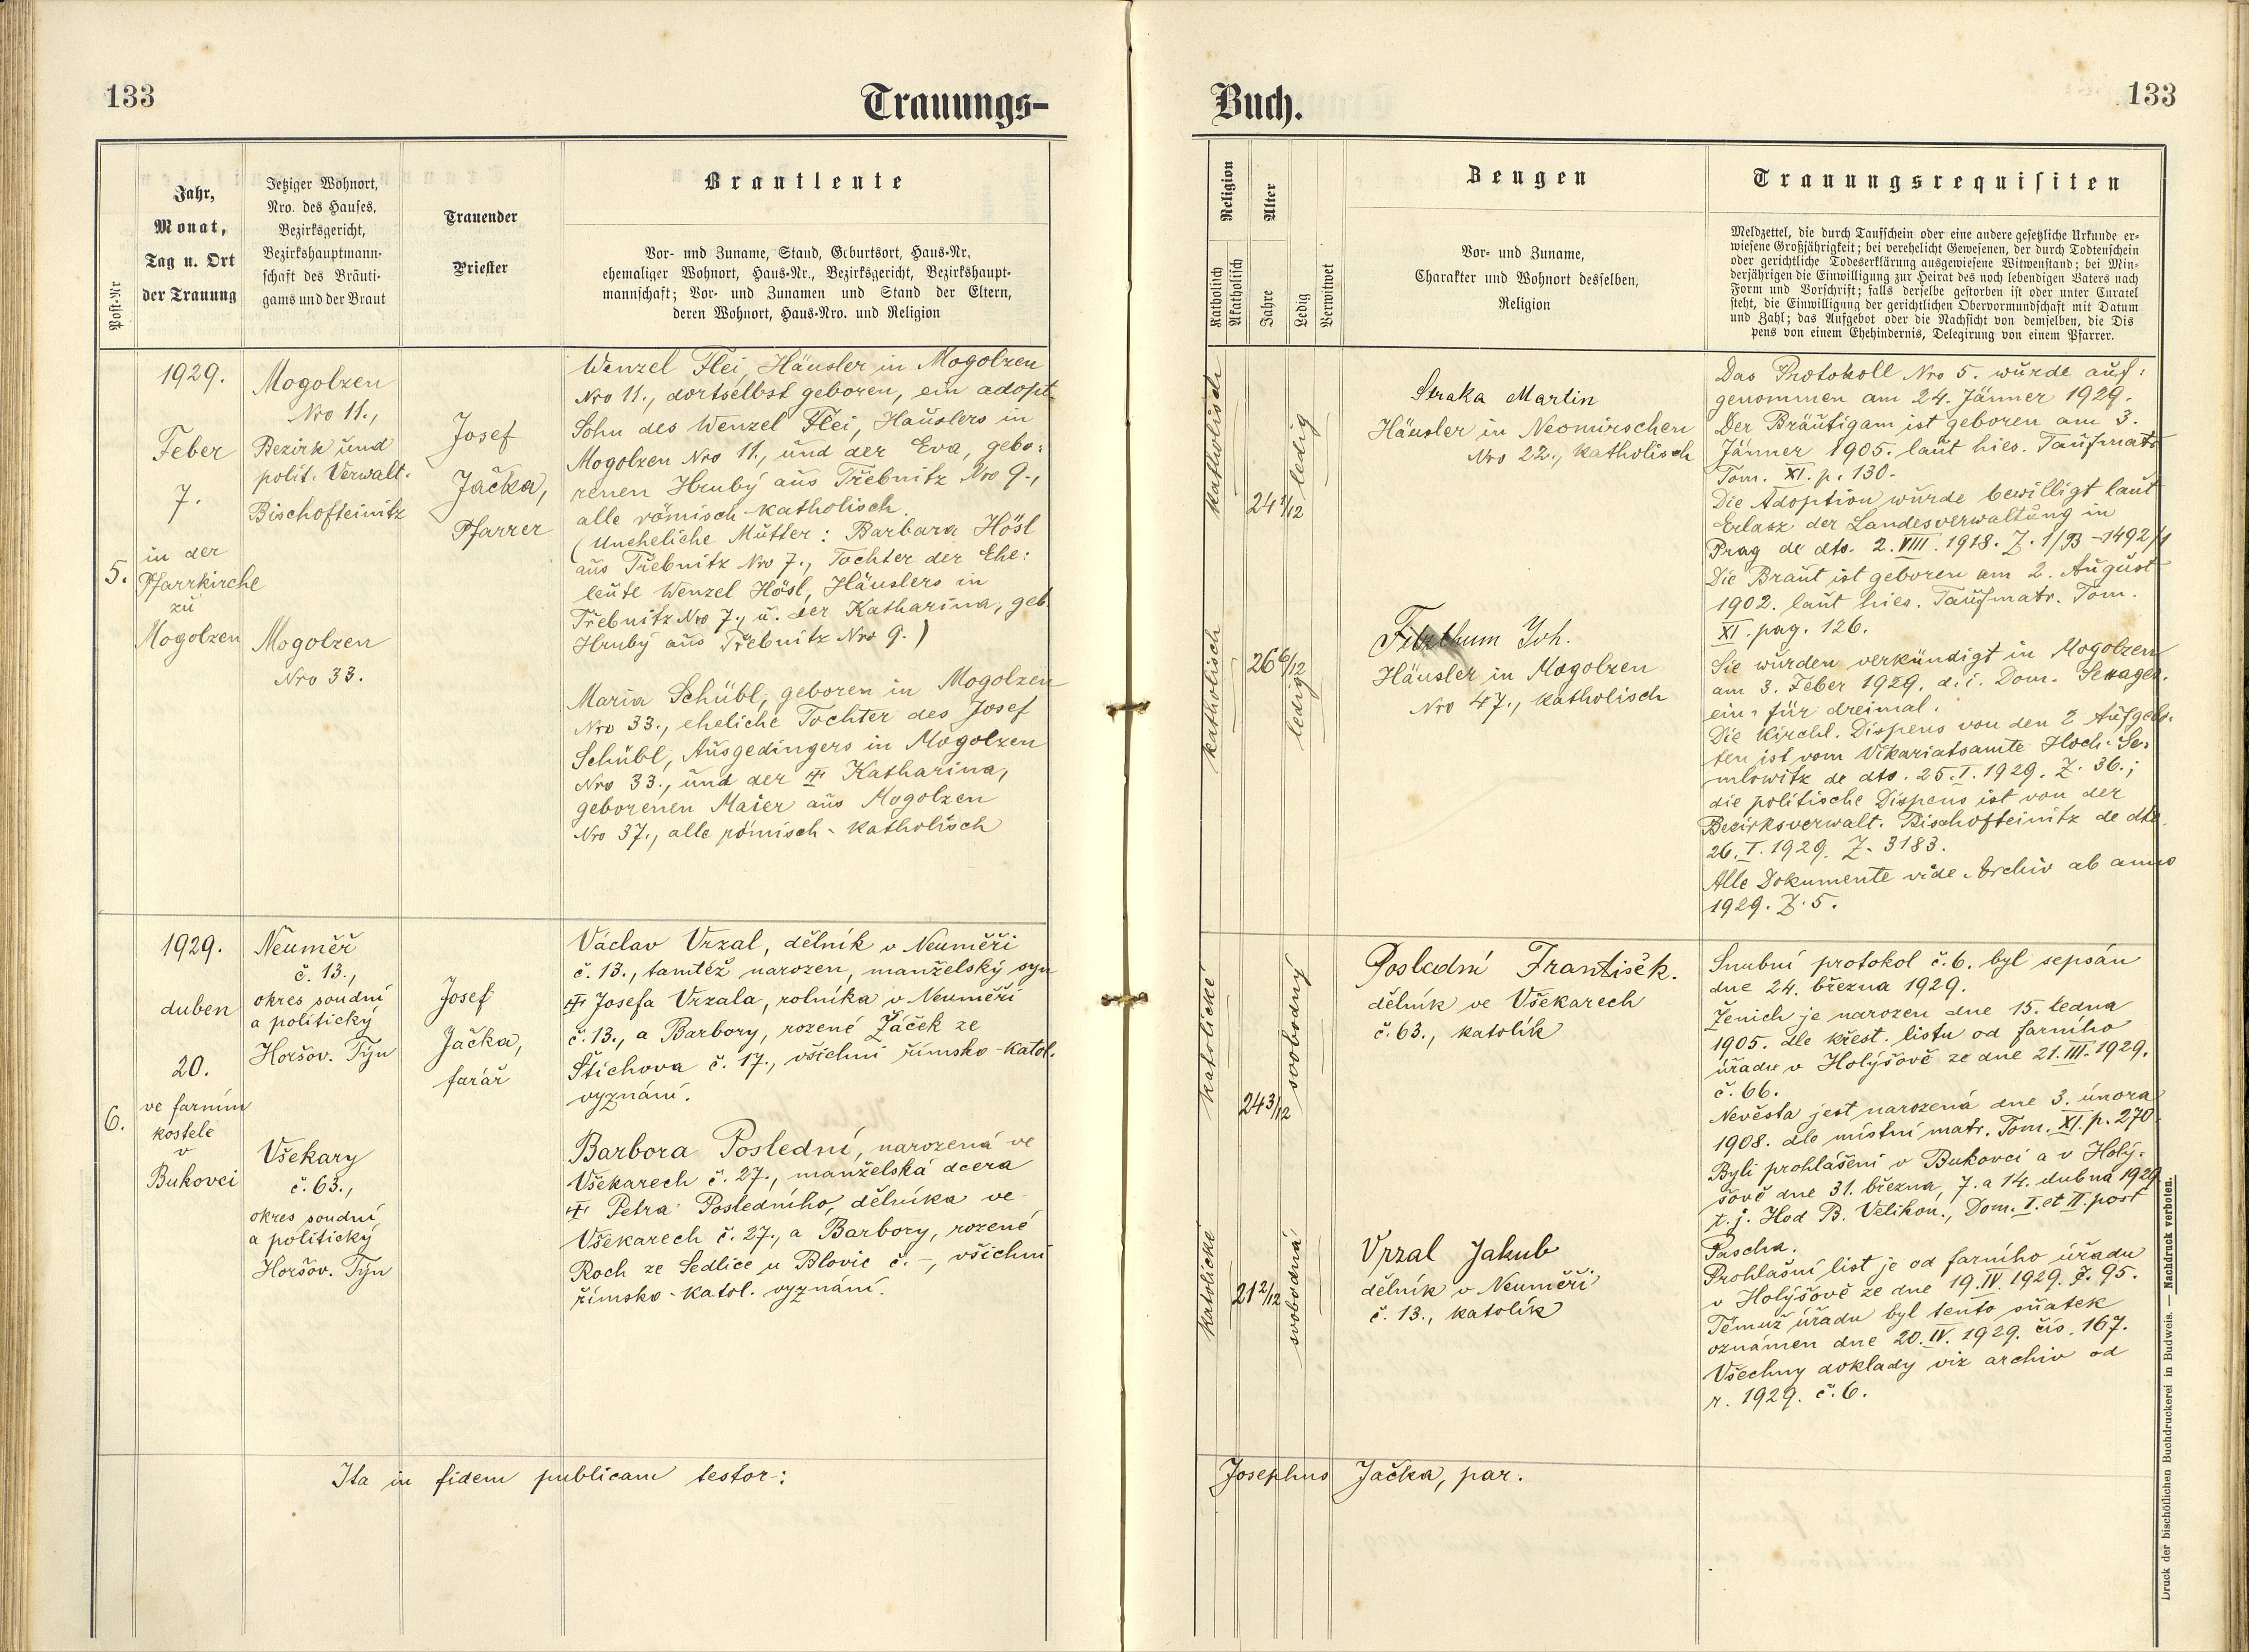 133
Trauungs-
Post-Nr
Jahr,
Monat,
Tag u. Ort
der Trauung
Jetziger Wohnort,
Nro. des Hauses,
Bezirksgericht,
Bezirkshauptmann-
schaft des Bräuti-
gams und der Braut
Trauender
Priester
Brautleute
Vor- und Zuname, Stand, Geburtsort, Haus-Nr.
ehemaliger Wohnort, Haus-Nr., Bezirksgericht, Bezirkshaupt-
mannschaft; Vor- und Zunamen und Stand der Eltern,
deren Wohnort, Haus-Nro. und Religion
5.
1929.
Feber
7.
in der
Pfarrkirche
zu
Mogolzen
Mogolzen
Nro 11.,
Bezirk und
polit. Verwalt.
Bischofteinitz
Mogolzen
Nro 33.
Josef
Jačka,
Pfarrer
Wenzel Flei, Häusler in Mogolzen
Nro 11., dortselbst geboren, ein adopt.
Sohn des Wenzel Flei, Häuslers in
Mogolzen Nro 11., und der Eva, gebo:
renen Hrubý aus Třebnitz Nro 9.,
alle römisch-katholisch.
(Uneheliche Mutter: Barbara Hösl
aus Třebnitz Nro 7., Tochter der Ehe:
leute Wenzel Hösl, Häuslers in
Třebnitz Nro 7., u. der Katharina, geb.
Hrubý aus Třebnitz Nro 9.)
Maria Schübl, geboren in Mogolzen
Nro 33., eheliche Tochter des Josef
Schübl, Ausgedingers in Mogolzen
Nro 33., und der ☩ Katharina,
geborenen Maier aus Mogolzen
Nro 37., alle römisch-katholisch
6.
1929.
duben
20.
ve farním
kostele
v
Bukovci
Neuměř
č. 13.,
okres soudní
a politický
Horšov. Týn
Všekary
č. 63.,
okres soudní
a politický
Horšov. Týn
Josef
Jačka,
farář
Václav Vrzal, dělník v Neuměři
č. 13., tamtéž narozen, manželský syn
☩ Josefa Vrzala, rolníka v Neuměři
č. 13., a Barbory, rozené Žáček ze
Štichova č. 17., všichni římsko-katol.
vyznání.
Barbora Poslední, narozená ve
Všekarech č. 27., manželská dcera
☩ Petra Posledního, dělníka ve
Všekarech č. 27., a Barbory, rozené
Roch ze Sedlice u Blovic č. -, všichni
římsko-katol. vyznání.
Ita in fidem publicam testor:
Buch.
133
Religion
Katholisch
Akatholisch
Alter
Jahre
Ledig
Verwitwet
Zeugen
Vor- und Zuname,
Charakter und Wohnort desselben,
Religion
Trauungsrequisiten
Meldzettel, die durch Taufschein oder eine andere gesetzliche Urkunde er-
wiesene Großjährigkeit; bei verehelicht Gewesenen, der durch Todtenschein
oder gerichtliche Todeserklärung ausgewiesene Witwenstand; bei Min-
derjährigen die Einwilligung zur Heirat des noch lebendigen Vaters nach
Form und Vorschrift; falls derselbe gestorben ist oder unter Curatel
steht, die Einwilligung der gerichtlichen Obervormundschaft mit Datum
und Zahl; das Aufgebot oder die Nachsicht von demselben, die Dis
pens von einem Ehehindernis, Delegirung von einem Pfarrer.
katholisch
24 1/12
ledig
katholisch
26 6/12
ledig
Straka Martin
Häusler in Neomirschen
Nro 22., katholisch
Joh.
Häusler in Mogolzen
Nro 47., katholisch
Das Protokoll Nro 5. wurde auf:
genommen am 24. Jänner 1929.
Der Bräutigam ist geboren am 3.
Jänner 1905. laut hies. Taufmatr.
Tom. XI. p. 130.
Die Adoption wurde bewilligt laut
Erlasz der Landesverwaltung in
Prag de dto. 2. VIII. 1918. Z. 1/93-1492/1
Die Braut ist geboren am 2. August
1902. laut hies. Taufmatr. Tom.
XI. pag. 126.
Sie wurden verkündigt in Mogolzen
am 3. Feber 1929, d. i. Dom. Sexages.
ein für dreimal.
Die kirchl. Dispens von den 2 Aufgebo:
ten ist vom Vikariatsamte Hoch-Se:
mlowitz de dto. 25. I. 1929. Z. 36.;
die politische Dispens ist von der
Bezirksverwalt. Bischofteinitz de dto.
26. I. 1929. Z. 3183.
Alle Dokumente vide Archiv ab anno
1929. Z. 5.
katolické
24 3/12
svobodný
katolické
21 2/12
svobodná
Poslední František.
dělník ve Všekarech
č. 63., katolík
Vrzal Jakub
dělník v Neuměři
č. 13., katolík
Snubní protokol č. 6. byl sepsán
dne 24. března 1929.
Ženich je narozen dne 15. ledna
1905. dle křest. listu od farního
úřadu v Holýšově ze dne 21. III. 1929.
č. 66.
Nevěsta jest narozená dne 3. února
1908. dle místní matr. Tom. XI. p. 270.
Byli prohlášeni v Bukovci a v Holý-
šově dne 31. března, 7. a 14. dubna 1929
t. j. Hod B. Velikon., Dom. I. et II. post
Pascha.
Prohlašní list je od farního úřadu
v Holýšově ze dne 19. IV. 1929. č. 95.
Témuž úřadu byl tento sňatek
oznámen dne 20. IV. 1929. čís. 167.
Všechny doklady viz archiv od
r. 1929. č. 6.
Josephus Jačka, par.
Druck der bischöflichen Buchdruckerei in Budweis. — Nachdruck verboten.